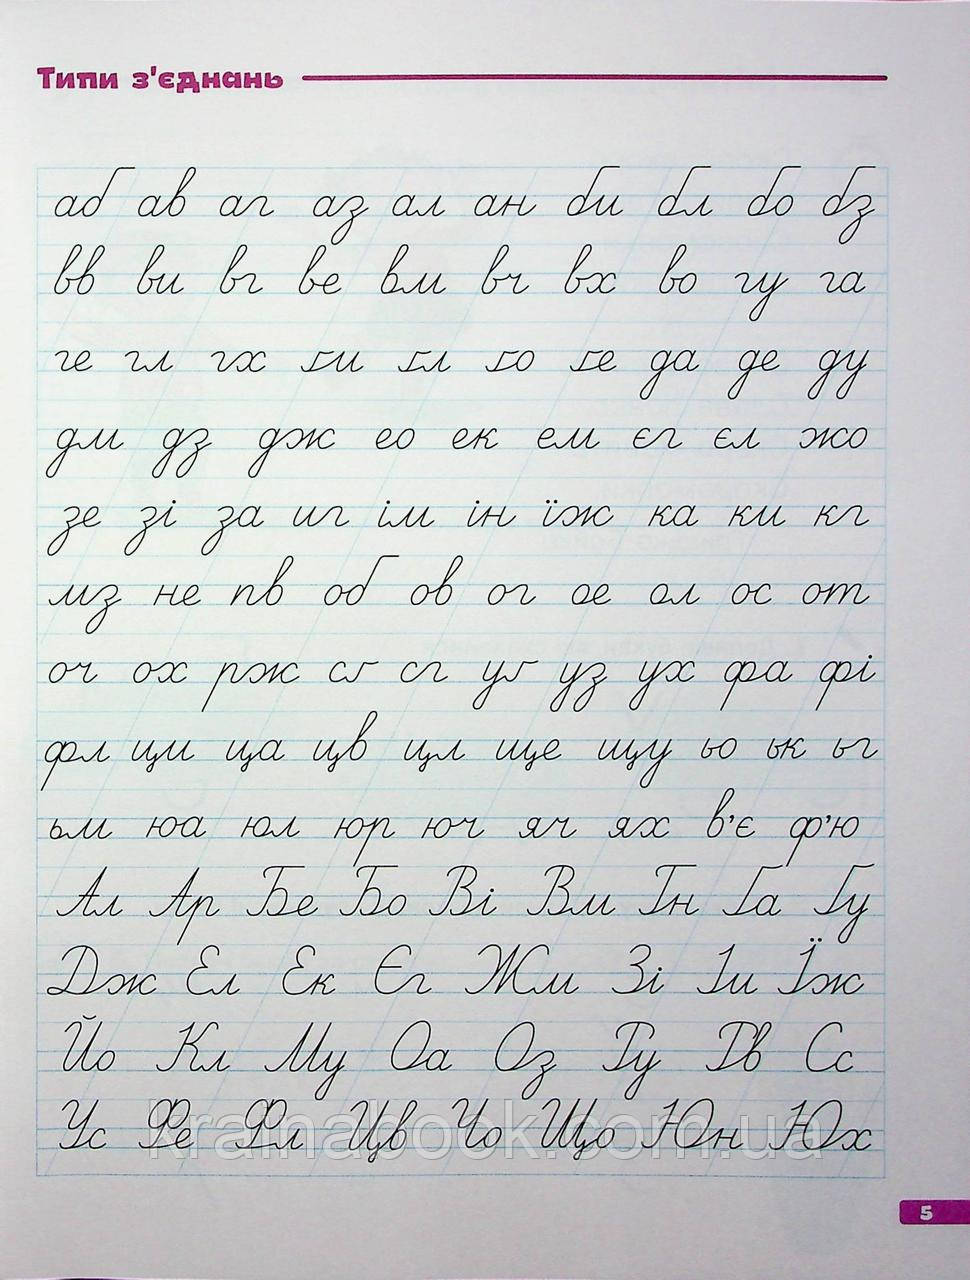 Типи з'єднань
аб ав аг аз ал ан би бл бо бз
вв ви вг ве вм вч вх во гу га
ге гл гх ґи ґл ґо ґе да де ду
дм дз дж ео ек ем єг єл жо
зе зі за иг ім ін їж ка ки кг
мз не пв об ов ог ое ол ос от
оч ох рж сґ сг уґ уз ух фа фі
фл ци ца цв цл ще щу ьо ьк ьг
ьм юа юл юр юч яч ях в'є ф'ю
Ал Ар Бе Бо Ві Вм Гн Га Ґу
Дж Ел Ек Єг Жм Зі Іи Їж
Йо Кл Му Оа Оз Ту Тв Сс
Ус Фе Фл Цв Чо Що Юн Юх
krainabook.com.ua
5